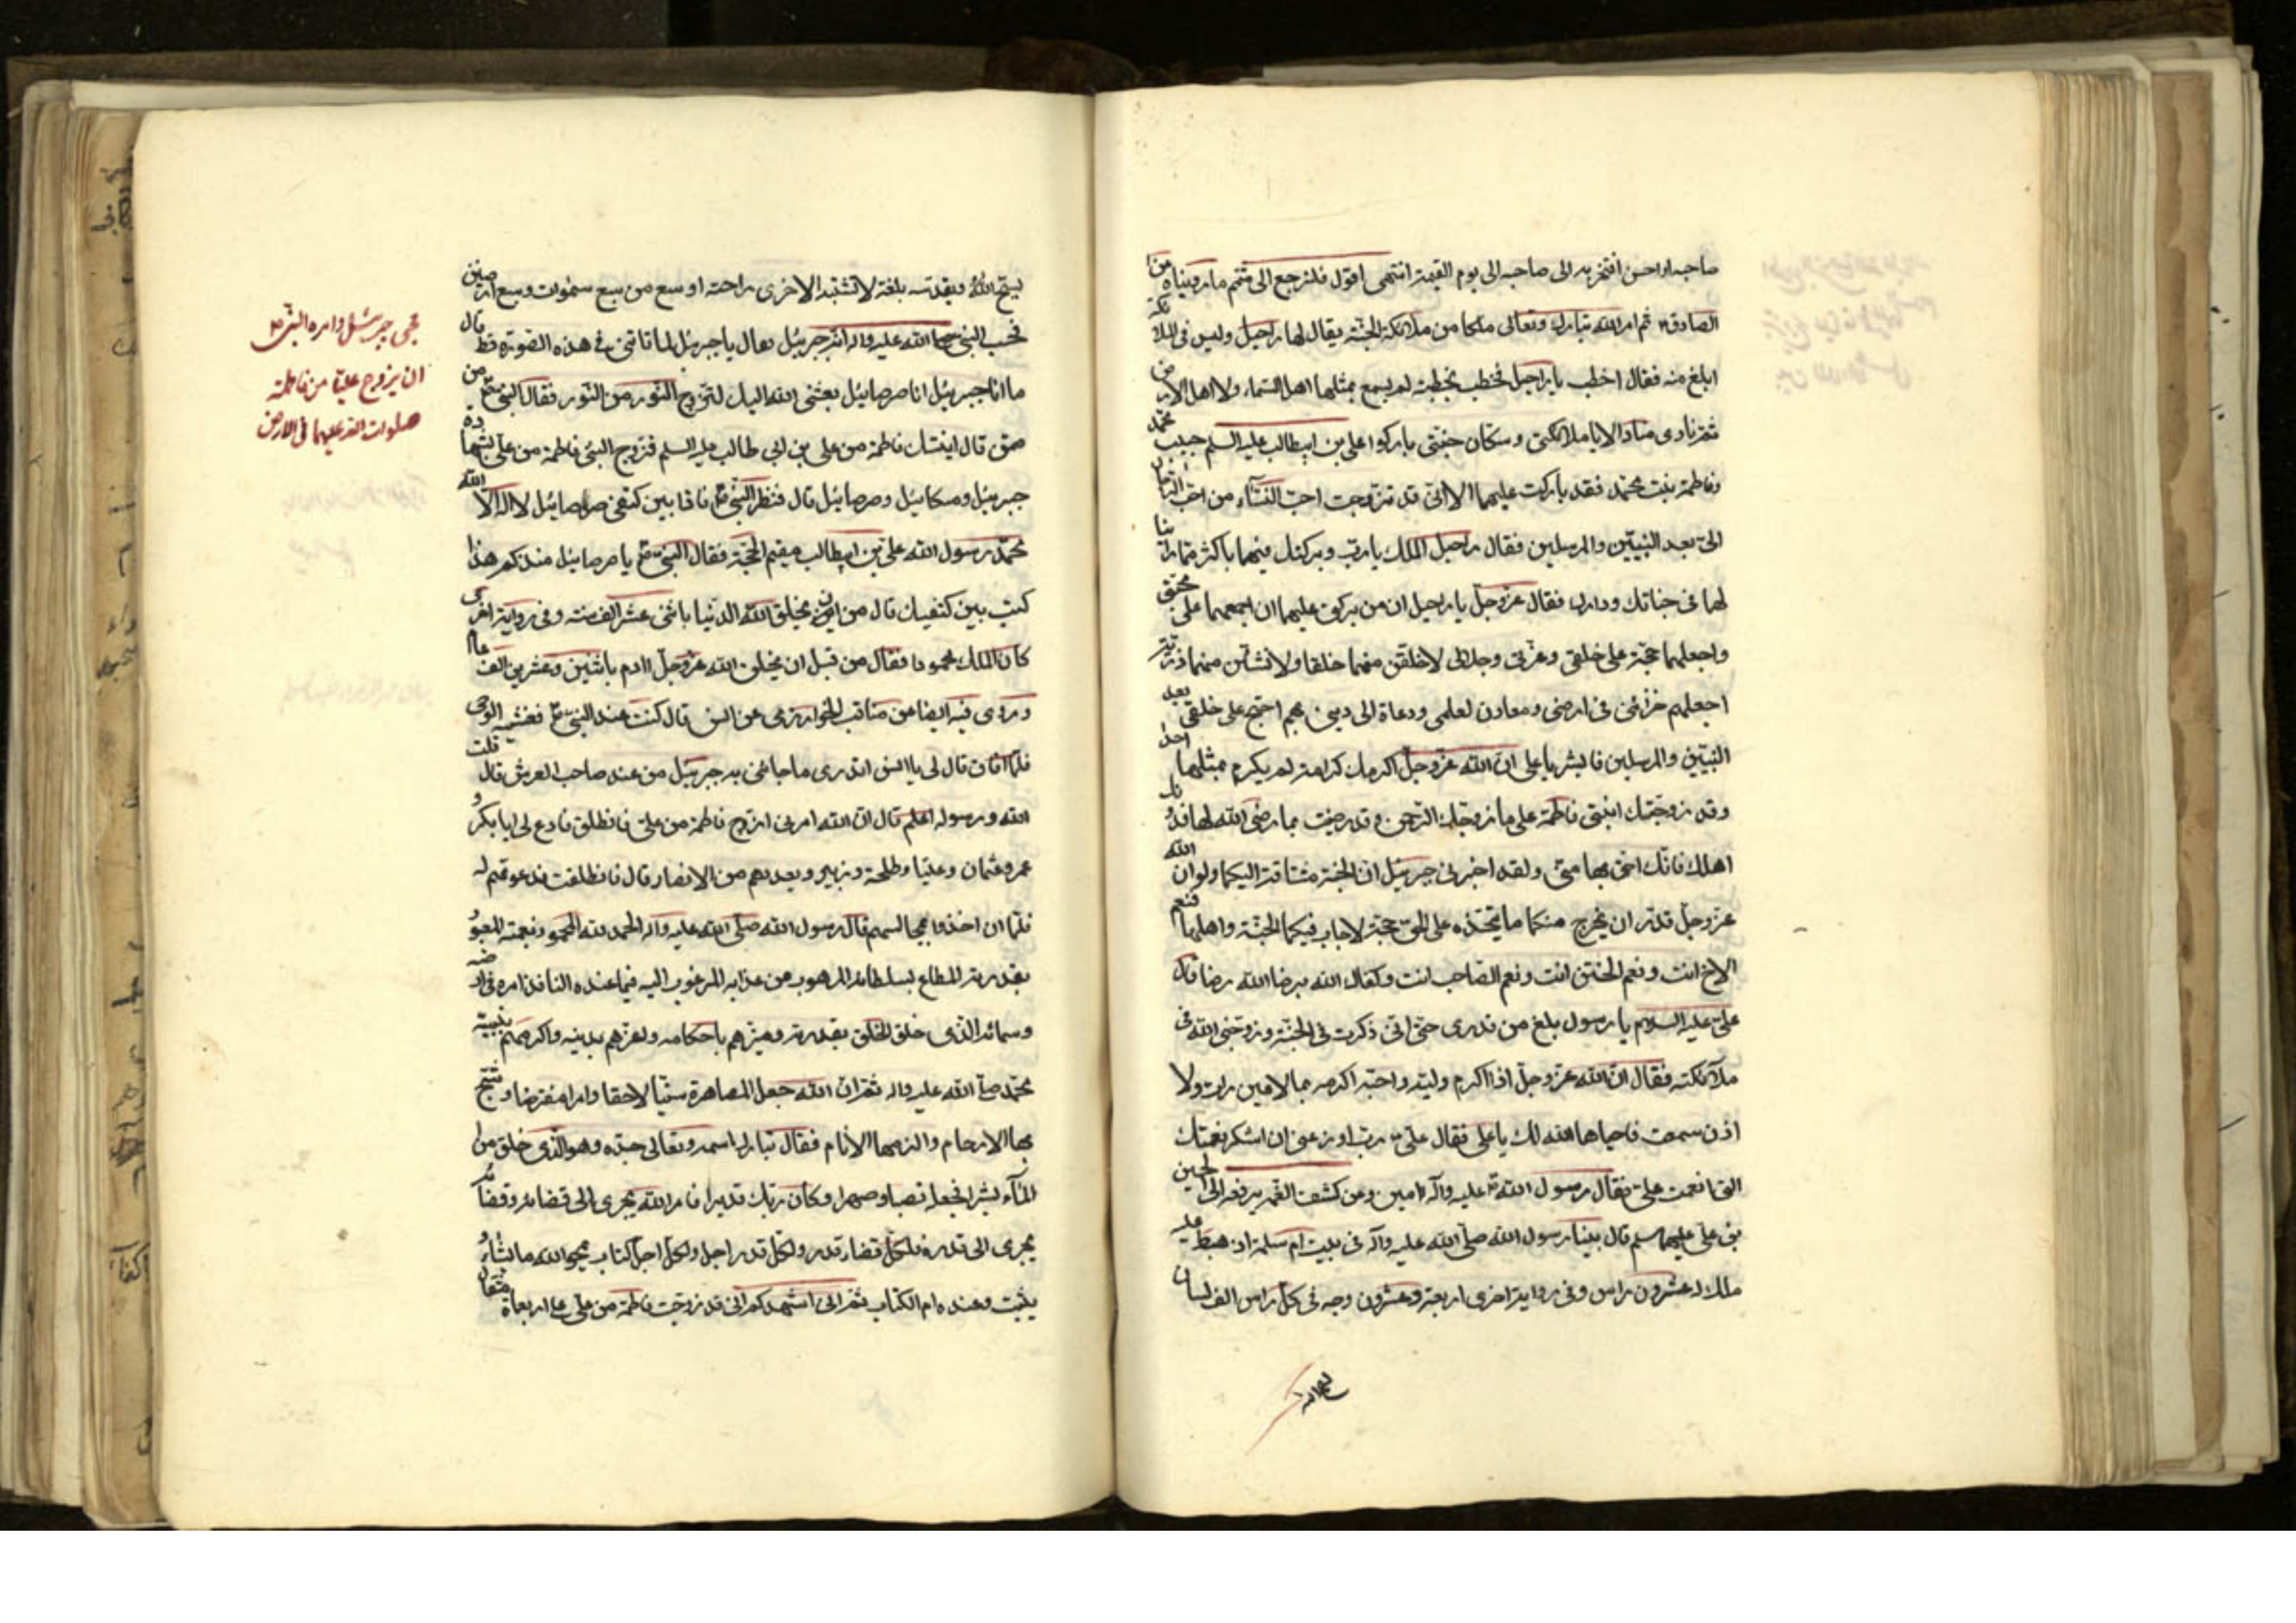 صاحبه او احسن افتخر به الى صاحبه الى يوم القيمة انتهى اقول فلنرجع الى تتمة ما رويناه عن
الصادق ثم امر الله تبارك وتعالى ملكا من ملائكة الجنة يقال لها راحيل وليس فى الملائكة
ابلغ منه فقال اخطب يا راحيل فخطب بخطبة لم يسمع بمثلها اهل السماء ولا اهل الارض
ثم نادى مناد الا يا ملائكتى وسكان جنتى باركوا على بن ابيطالب عليه السلم حبيب محمد
وفاطمة بنت محمد فقد باركت عليهما الا انى قد تزوجت احب النساء من احب الرجال
الى بعد النبيين والمرسلين فقال راحيل الملك يا رب وبركتك فيهما باكثر مما راينا
لهما فى جناتك ودارك فقال عز وجل يا راحيل ان من بركتى عليهما ان اجمعهما على محبتى
واجعلهما حجة على خلقى وعزتى وجلالى لاخلقن منهما خلقا ولانشان منهما ذرية
اجعلهم خزانى فى ارضى ومعادن لعلمى ودعاة الى دينى بهم احتج على خلقى بعد
النبيين والمرسلين فابشر يا على ان الله عز وجل اكرمك كرامة لم يكرم بمثلها احدا
وقد زوجتك ابنتى فاطمة على ما زوجك الرحمن وقد رضيت بما رضى الله لها فدونك
اهلك فانك احق بها منى ولقد اخبرنى جبرئيل ان الجنة مشتاقة اليكما ولو ان الله
عز وجل قدر ان يخرج منكما ما يتخذه على الخلق حجة لاجاب فيكما الجنة واهلها فنعم
الاخ انت ونعم الختن انت ونعم الصاحب انت وكفاك الله برضا الله رضا قال
على عليه السلام يا رسول بلغ من قدرى حتى انى ذكرت فى الجنة وزوجنى الله فى
ملائكته فقال ان الله عز وجل اذا اكرم وليه واحبه اكرمه بما لا عين رات ولا
اذن سمعت فاحباها الله لك يا على فقال على رب اوزعنى ان اشكر نعمتك
التى انعمت على فقال رسول الله عليه وآله امين وعن كشف الغمه يرفعه الى الحسين
بن على عليهما سلم قال بينا رسول الله صلى الله عليه وآله فى بيت ام سلمة اذ هبط عليه
ملك له عشرون راس وفى رواية اخرى اربعة وعشرون وجه فى كل راس الف لسان
يسبح الله
يسبح الله ويقدسه بلغة لا تشبه الاخرى راحته اوسع من سبع سموات وسبع ارضين
فحسب النبى صلى الله عليه واله انه جبرئيل فقال يا جبرئيل لما تاتنى فى هذه الصورة قط قال
ما انا جبرئيل انا صرصائيل بعثنى الله اليك لتزوج النور من النور فقال النبى من
ممن قال ابنتك فاطمة من على بن ابى طالب عليه السلم فزوج النبى فاطمة من على بشهادة
جبرئيل وميكائيل وصرصائيل قال فنظر النبى فاذا بين كتفى صرصائيل لا اله الا الله
محمد رسول الله على بن ابيطالب مقيم الحجة فقال النبى يا صرصائيل منذ كم هذا
كتب بين كتفيك قال من قبل ان يخلق الله الدنيا باثنى عشر الف سنه وفى رواية اخرى
كان الملك محمودا فقال من قبل ان يخلق الله عز وجل ادم باثنين وعشرين الف عام
وروى فيه ايضا عن مناقب الخوارزمى عن انس قال كنت عند النبى فغشيه الوحى
فلما افاق قال لى يا انس اتدرى ما جاءنى به جبرئيل من عند صاحب العرش قال قلت
الله ورسوله اعلم قال ان الله امرنى ازوج فاطمة من على فانطلق فادع لى ابا بكر و
عمر وعثمان وعليا وطلحة وزبير وبعددهم من الانصار قال فانطلقت فدعوتهم له
فلما ان اخذوا مجالسهم قال رسول الله صلى الله عليه واله الحمد لله المحمود بنعمته المعبود
بقدرته المطاع بسلطانه المرهوب من عذابه المرغوب اليه فيما عنده النافذ امره فى ارضه
وسمائه الذى خلق الخلق بقدرته وميزهم باحكامه واعزهم بدينه واكرمهم بنبيه
محمد صلى الله عليه واله ثم ان الله جعل المصاهرة نسبا لاحقا وامرا مفترضا وشج
بها الارحام والزمها الانام فقال تبارك اسمه وتعالى جده وهو الذى خلق من
الماء بشرا فجعله نسبا وصهرا وكان ربك قديرا فامر الله يجرى الى قضائه وقضائه
يجرى الى قدره فلكل قضاء قدر ولكل قدر اجل ولكل اجل كتاب يمحو الله ما يشاء و
يثبت وعنده ام الكتاب ثم انى اشهدكم انى قد زوجت فاطمة من على على اربعماة مثقال
مجى جبرئيل وامره النبى ص
ان يزوج عليا من فاطمة
صلوات الله عليهما فى الارض